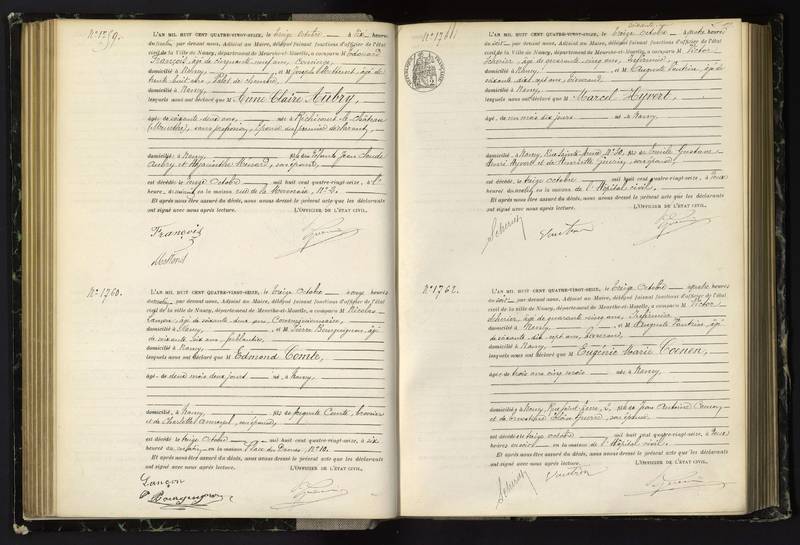 N° 1759.
L'AN MIL HUIT CENT QUATRE-VINGT-SEIZE, le treize octobre à dix heures
du matin par devant nous, Adjoint au Maire, délégué faisant fonctions d'officier de l'état
civil de la ville de Nancy, département de Meurthe-et-Moselle, a comparu M Edouard
François, âgé de cinquante cinq ans, Concierge,
domicilié à Nancy, et M Joseph âgé de
trente huit ans, Valet de chambre,
domicilié à Nancy
lesquels nous ont déclaré que M Anne Claire Aubry,
âgée de soixante deux ans, née à Réchicourt-le-Château
(Meurthe), sans profession, épouse du premier déclarant,
domiciliée à Nancy, fille des défunts Jean Claude
Aubry et Hyacinthe
est décédée le treize octobre mil huit cent quatre-vingt-seize, à
heure du matin en la maison rue de la N° 2.
Et après nous être assuré du décès, nous avons dressé le présent acte que les déclarants
ont signé avec nous après lecture. L'OFFICIER DE L'ÉTAT CIVIL,
François
N° 1760.
L'AN MIL HUIT CENT QUATRE-VINGT-SEIZE, le treize octobre à onze heures
du matin par devant nous, Adjoint au Maire, délégué faisant fonctions d'officier de l'état
civil de la ville de Nancy, département de Meurthe-et-Moselle, a comparu M Nicolas
Lançon, âgé de soixante deux ans, Commissionnaire,
domicilié à Nancy, et M Pierre Bourguignon, âgé
de soixante six ans, ferblantier,
domicilié à Nancy
lesquels nous ont déclaré que M Edmond Comte,
âgé de deux mois deux jours né à Nancy
domicilié à Nancy, fils de Auguste Comte,
et de Charlotte son épouse,
est décédé le treize octobre mil huit cent quatre-vingt-seize, à six
heures du matin en la maison Place des Dames, N° 10.
Et après nous être assuré du décès, nous avons dressé le présent acte que les déclarants
ont signé avec nous après lecture. L'OFFICIER DE L'ÉTAT CIVIL,
Lançon
P. Bourguignon
N° 1761.
L'AN MIL HUIT CENT QUATRE-VINGT-SEIZE, le treize octobre à quatre heures
du soir par devant nous, Adjoint au Maire, délégué faisant fonctions d'officier de l'état
civil de la ville de Nancy, département de Meurthe-et-Moselle, a comparu M Victor
âgé de quarante cinq ans, Infirmier,
domicilié à Nancy, et M Auguste Vautrin, âgé de
soixante dix sept ans,
domicilié à Nancy,
lesquels nous ont déclaré que M Marcel Hyvert,
âgé de un mois dix jours né à Nancy
domicilié à Nancy, Rue Sainte Anne N° 10. fils de Emile Gustave
Henri Hyvert et de son épouse,
est décédé le treize octobre mil huit cent quatre-vingt-seize, à
heures du matin en la maison de l'Hôpital civil,
Et après nous être assuré du décès, nous avons dressé le présent acte que les déclarants
ont signé avec nous après lecture. L'OFFICIER DE L'ÉTAT CIVIL,
Vautrin
N° 1762.
L'AN MIL HUIT CENT QUATRE-VINGT-SEIZE, le treize octobre à quatre heures
du soir par devant nous, Adjoint au Maire, délégué faisant fonctions d'officier de l'état
civil de la ville de Nancy, département de Meurthe-et-Moselle, a comparu M Victor
âgé de quarante cinq ans, Infirmier
domicilié à Nancy, et M Auguste Vautrin, âgé
de soixante dix sept ans,
domicilié à Nancy,
lesquels nous ont déclaré que M Eugénie Marie Coenen,
âgée de trois ans cinq mois née à Nancy
domiciliée à Nancy, Rue fille de Jean Antoine Coenen
et de son épouse
est décédée le treize octobre mil huit cent quatre-vingt-seize, à
heures du en la maison de l'Hôpital civil,
Et après nous être assuré du décès, nous avons dressé le présent acte que les déclarants
ont signé avec nous après lecture. L'OFFICIER DE L'ÉTAT CIVIL,
Vautrin